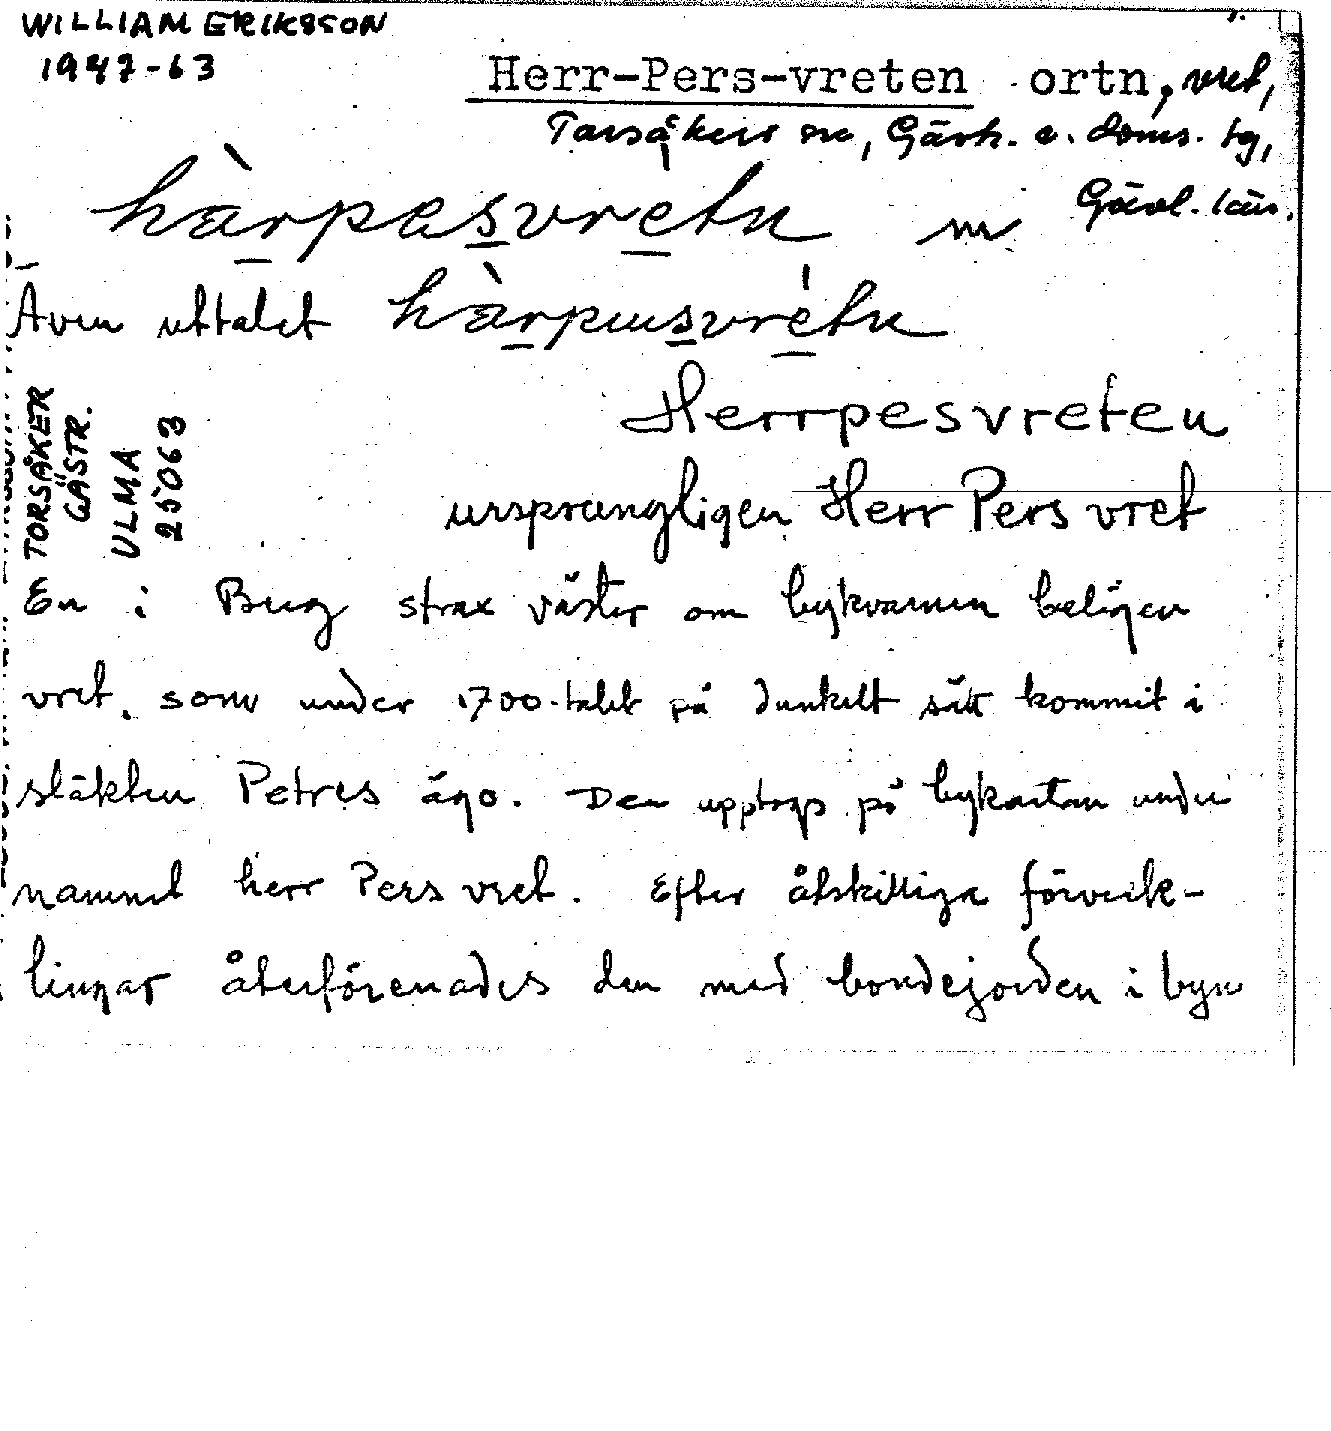 WILLIAM ERIKSSON
1947-63
Herr-Pers-vreten ortn, vret,
Torsåkers sn, Gästr. ö. doms. tg,
Gävl. län.
hàrpesvretn m
Även uttalet hàrpusvretn
Herrpesvreten
ursprungligen Herr Pers vret
TORSÅKER
GÄSTR.
ULMA
25063
En i Berg strax väster om bykvarnen belägen
vret, som under 1700-talet på dunkelt sätt kommit i
släkten Petres ägo. Den upptogs på bykartan under
namnet herr Pers vret. Efter åtskilliga förveck-
lingar återförenades den med bondejorden i byn